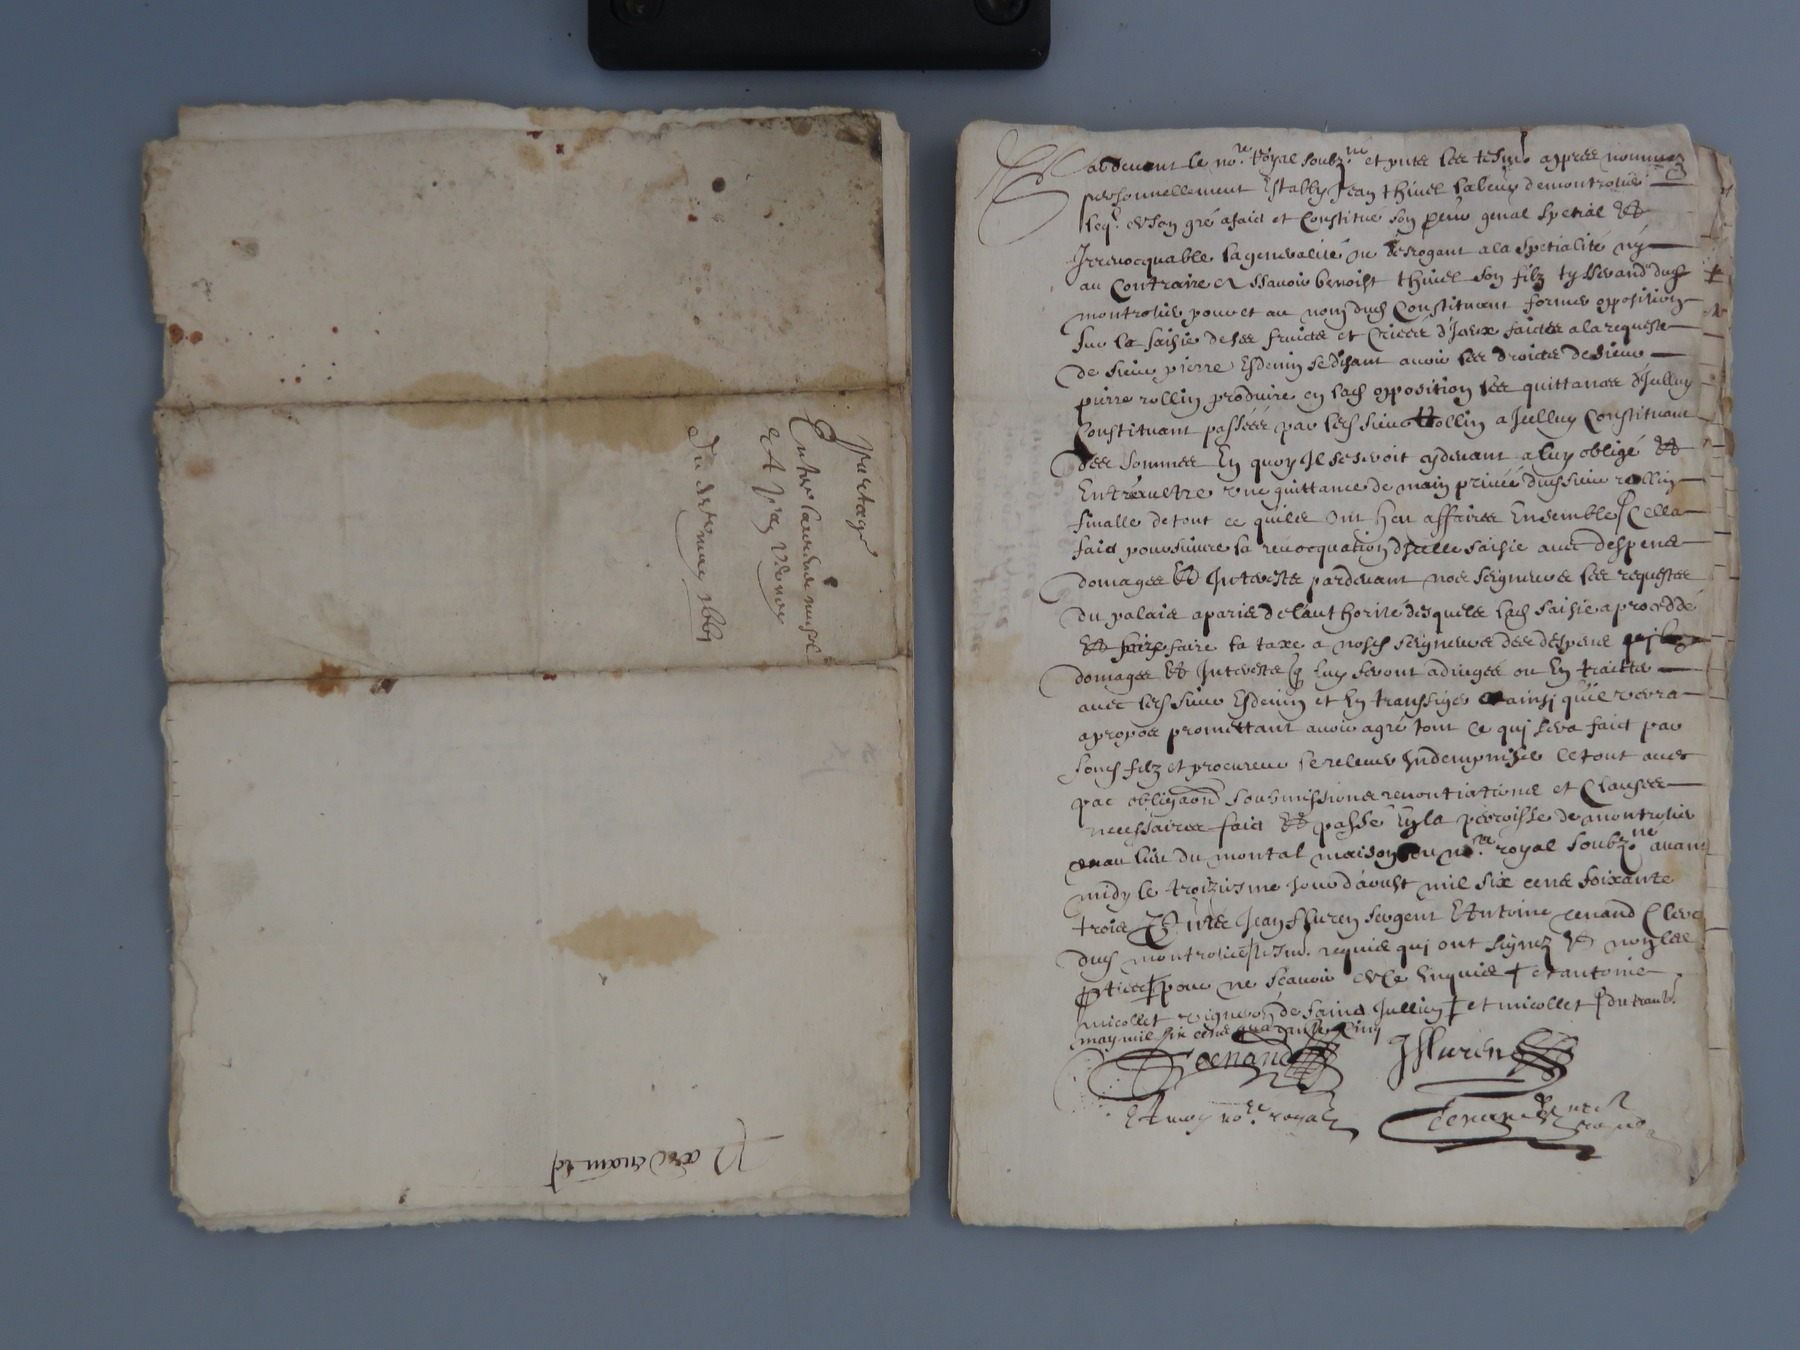 Partage
Entre
du
1661
Pardevant le no.re Royal soubz.ne et pntz les tesm. appres nommez
personnellement Estably Jean thivel labeur demontrotier
leq.l de son gré a faict et Constitue son pcur gnal spetial Et
Irrevocquable la generalité ne desrogant a la spetialité ny
au Contraire A Scavoir benoist thivel son filz tysserand dud
montrotier pour et au nom dud Constituant former opposition
sur la saisie de ses fruictz et criees d'Iceux faictes a la requeste
de sieur pierre Esdenin se disant avoir les droictz de sieur
pierre rollin produire en lad opposition les quittances d'Icelluy
Constituant passées par led sieur Rollin a Icelluy Constituant
des sommes En quoy Il se seroit cydevant a luy obligé Et
Entreaultre une quittance de main privée dud sieur rollin
finalle de tout ce quilz Ont heu affaires Ensemble Cella
faict poursuivre la revocquation d'Icelle saisie avec despens
domages Et Interestz pardevant nos seigneurs les requestes
du palais a paris de l'authorité desquels lad saisie a procedé
Et faire faire la taxe a nosd seigneurs des despens
domages Et Interestz q luy seront adiugés ou En traicter
avec led sieur Esdenin et En transsiger ainsi quil verra
a propos promettant avoir agré tout Ce qui sera faict par
sond filz et procureur se relever Indempniser le tout avec
par obligaon soubmissions renontiations et Clauses
necessaires faict Et passé En la parroisse de montrotier
au lieu du montal maison du no.re royal soubz.ne avant
midy le troizieme Jour d'aoust mil six cens soixante
trois Jean fflurey sergent Et Antoine cenand Clerc
dud montrotier tesm. requis qui ont signez Et non les
pties pour ne scavoir de ce Enquis et antoine
micollet vigneron de Sainct Jullien et micollet du
may mil six cens quarante cinq
Cenand Jfflurey
Et moy no.re royal
Pardevant